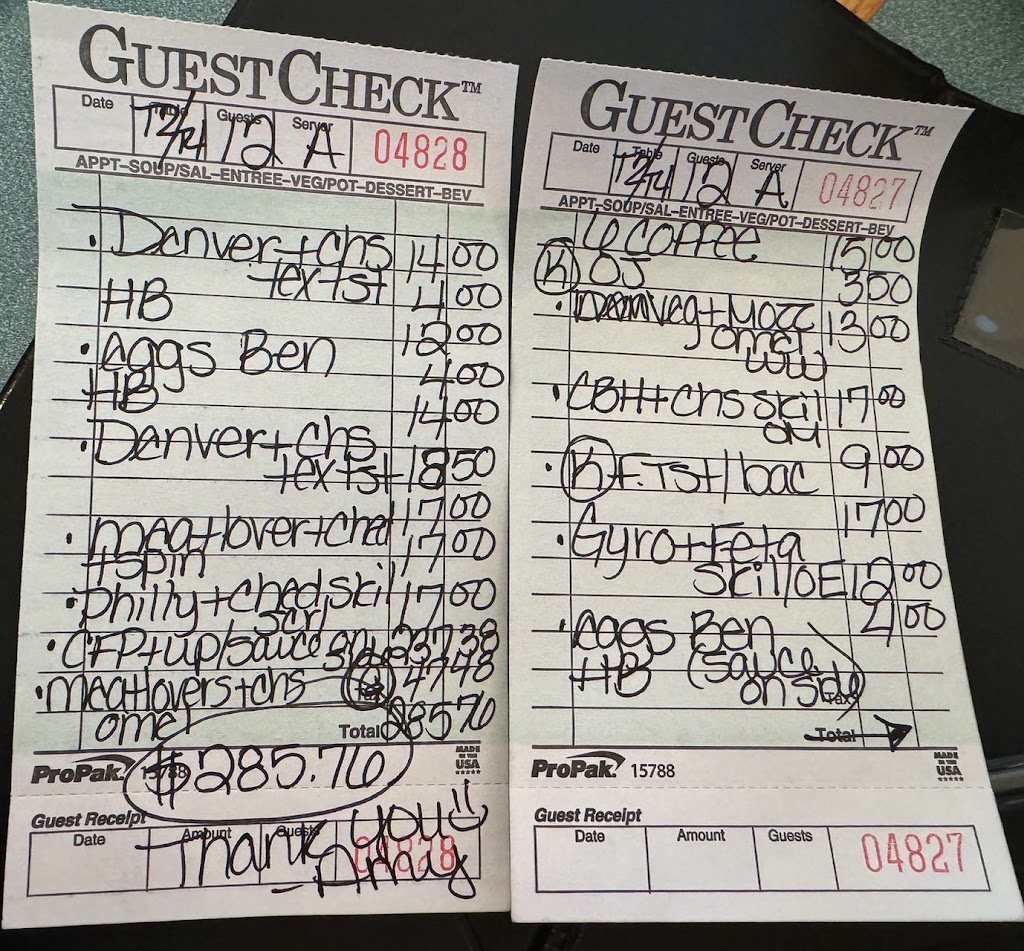 GUEST CHECK™
Date Table Guests Server
T2/T4 12 A 04828
APPT-SOUP/SAL-ENTREE-VEG/POT-DESSERT-BEV
Denver+chs 14 00
+ex+st
HB 4 00
12 00
eggs Ben
4 00
HB
14 00
Denver+chs
+ex+st 18 50
17 00
meat lover+ched
+spin 17 00
Philly+ched skil 17 00
scr
CFP+up/sauce on 237 38
side
Meat lovers+chs Tax 47 48
omel
Total 285 76
$285.76
ProPak. 15788
MADE IN THE USA
Guest Receipt
Date Amount Guests
04828
Thank you
-Amy
GUEST CHECK™
Date Table Guests Server
T2/T4 12 A 04827
APPT-SOUP/SAL-ENTREE-VEG/POT-DESSERT-BEV
6 coffee 15 00
K OJ 3 00
Veg+Mozz 13 00
omel
WW
CBH+chs skil 17 00
OM
K F.Tst/bac 9 00
17 00
Gyro+Feta
skil/OE 12 00
4 00
eggs Ben
HB (sauce
on side)
Tax
Total
ProPak. 15788
MADE IN THE USA
Guest Receipt
Date Amount Guests
04827